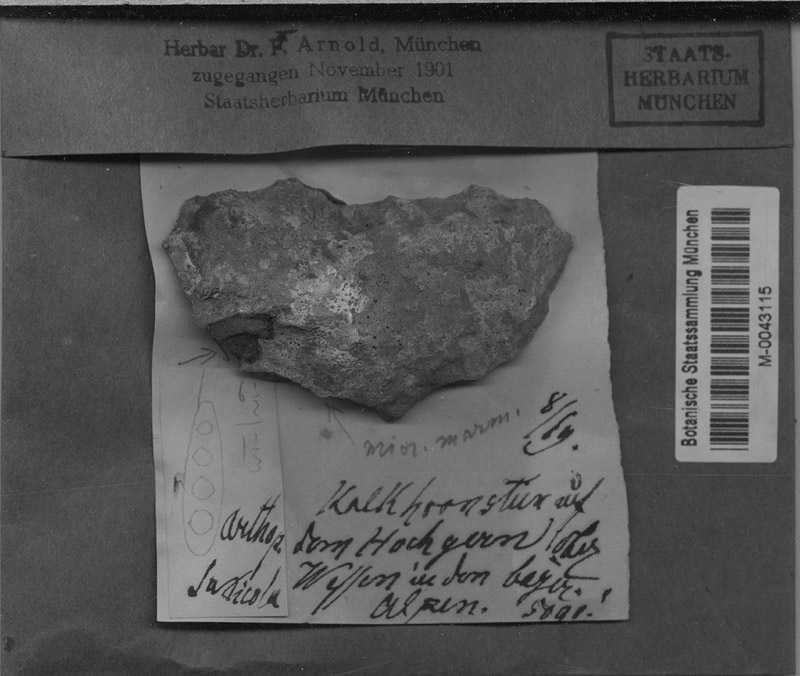 Herbar Dr. F. Arnold, München
zugegangen November 1901
Staatsherbarium München
STAATS-
HERBARIUM
MÜNCHEN
Botanische Staatssammlung München
M-0043115
mior. marm.
8/69.
Kalkhornstein auf
dem Hochgern ober
Wessen in den bayer.
Alpen. 5091!
arthop.
saxicola